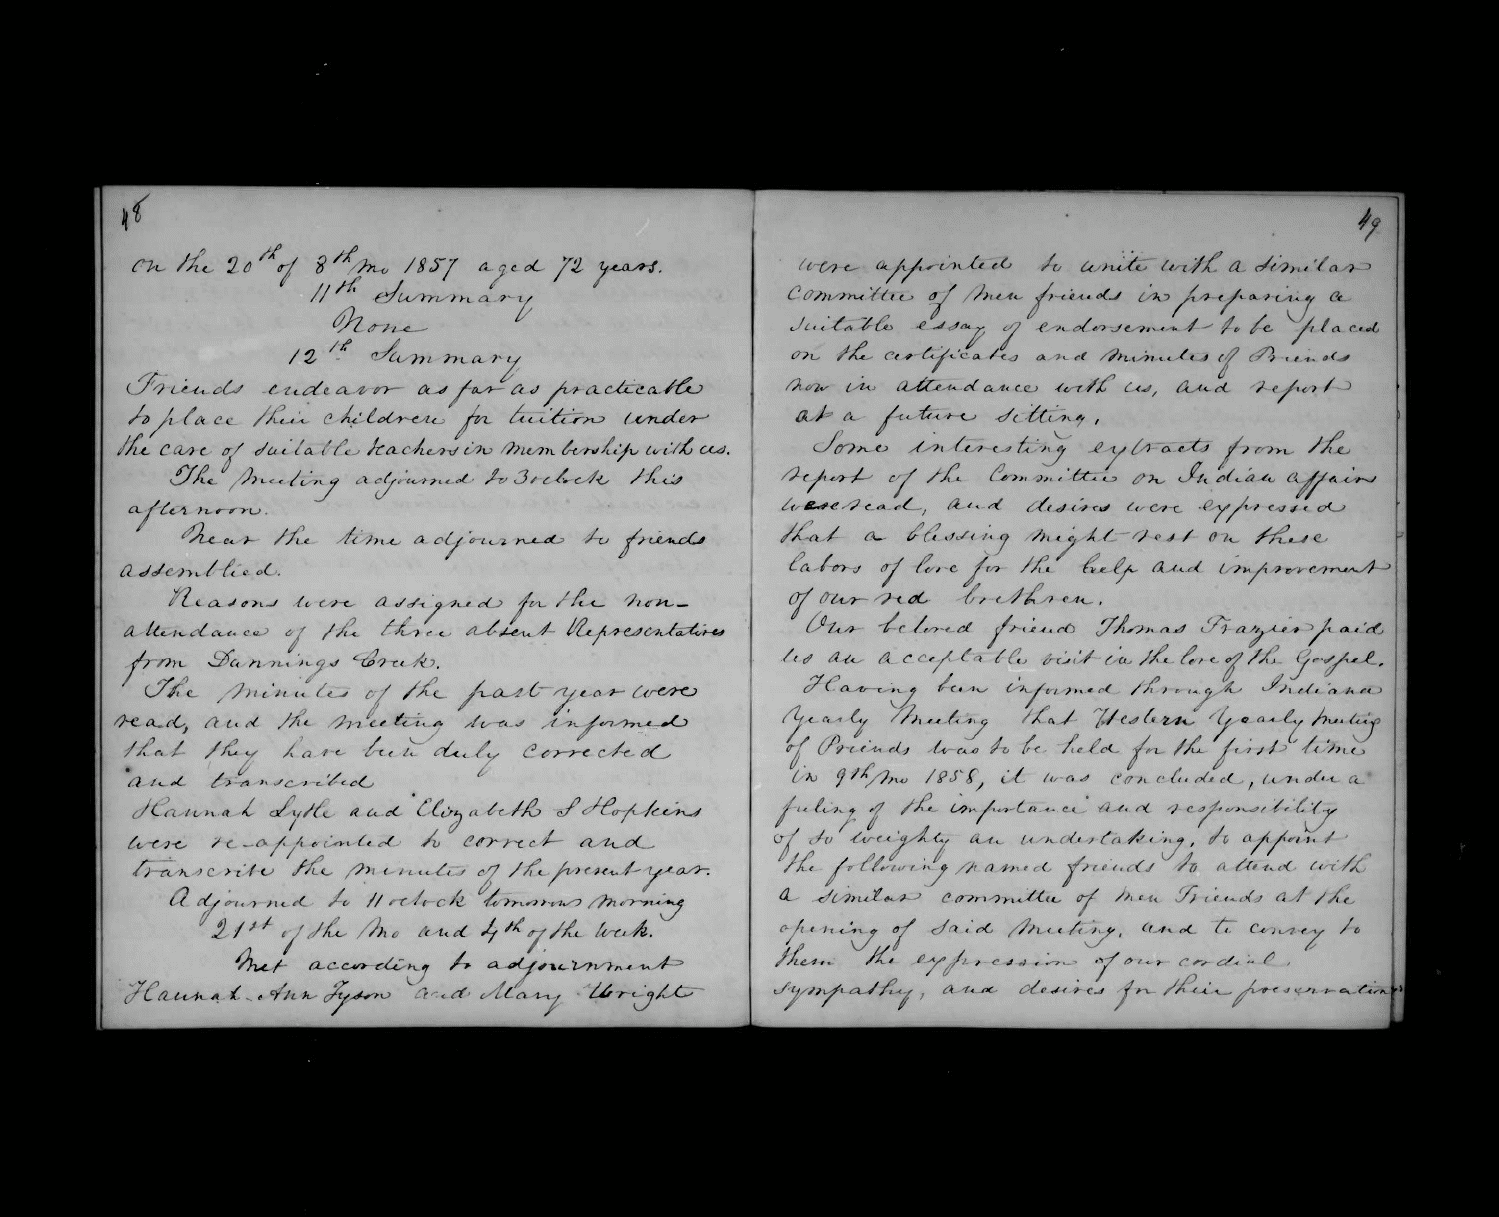 48
on the 20th of 8th mo 1857 aged 72 years.
11th Summary
None
12th Summary
Friends endeavor as far as practicable
to place their children for tuition under
the care of suitable teachers in membership with us.
The Meeting adjourned to 3 oclock this
afternoon.
Near the time adjourned to friends
assembled.
Reasons were assigned for the non-
attendance of the three absent Representatives
from Dunnings Creek.
The minutes of the past year were
read, and the meeting was informed
that they have been duly corrected
and transcribed
Hannah Lytle and Elizabeth S Hopkins
were re-appointed to correct and
transcribe the minutes of the present year.
Adjourned to 11 oclock tomorrow morning
21st of the Mo and 4th of the week.
Met according to adjournment
Hannah Ann Tyson and Mary Wright
49
were appointed to unite with a similar
committee of men friends in preparing a
suitable essay of endorsement to be placed
on the certificates and minutes of Friends
now in attendance with us, and report
at a future sitting.
Some interesting extracts from the
report of the Committee on Indian affairs
were read, and desires were expressed
that a blessing might rest on these
labors of love for the help and improvement
of our red brethren.
Our beloved friend Thomas Frazier paid
us an acceptable visit in the love of the Gospel.
Having been informed through Indiana
Yearly Meeting that Western Yearly Meeting
of Friends was to be held for the first time
in 9th Mo 1858, it was concluded, under a
feeling of the importance and responsibility
of so weighty an undertaking, to appoint
the following named friends to attend with
a similar committee of men Friends at the
opening of said Meeting, and to convey to
them the expression of our cordial
sympathy, and desires for their preservation